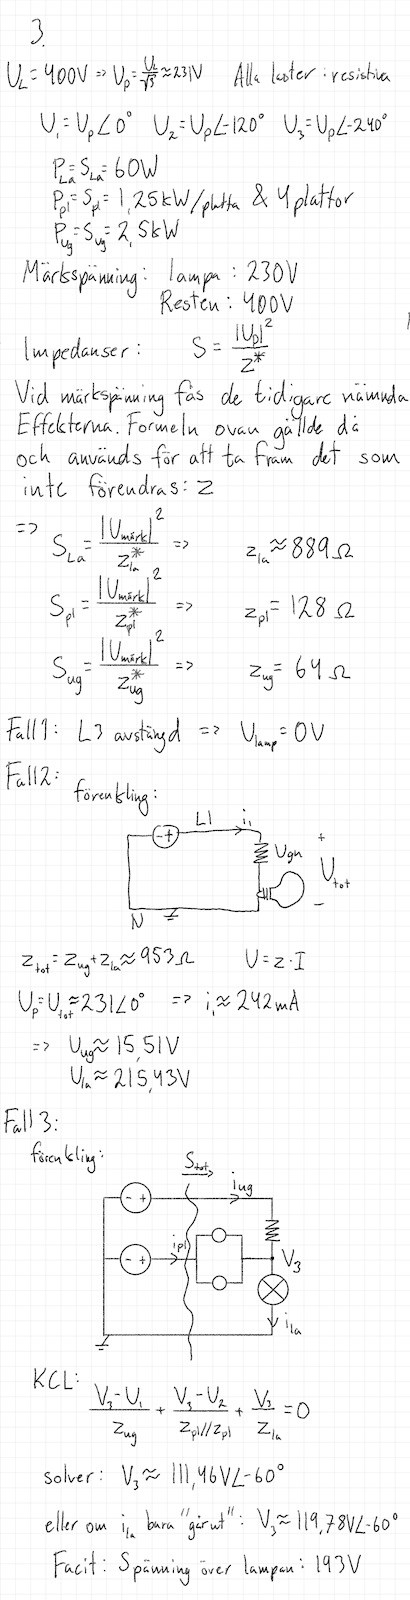 3.
U_L = 400V => U_p = U_L/√3 ≈ 231V Alla laster : resistiva
U_1 = U_p∠0° U_2 = U_p∠-120° U_3 = U_p∠-240°
P_La = S_La = 60W
P_pl = S_pl = 1,25kW/platta & 4 plattor
P_ug = S_ug = 2,5kW
Märkspänning: lampa : 230V
Resten : 400V
Impedanser: S = |U_p|²/Z*
Vid märkspänning fås de tidigare nämnda
Effekterna. Formeln ovan gällde då
och används för att ta fram det som
inte förendras: Z
=> S_La = |U_märk|²/Z_la* => Z_la ≈ 889 Ω
S_pl = |U_märk|²/Z_pl* => Z_pl = 128 Ω
S_ug = |U_märk|²/Z_ug* => Z_ug = 64 Ω
Fall 1: L3 avstängd => U_lamp = 0V
Fall 2:
förenkling:
L1 i_1
- +
Ugn
+
U_tot
-
N
Z_tot = Z_ug + Z_la ≈ 953Ω U = Z·I
U_p = U_tot ≈ 231∠0° => i_1 ≈ 242mA
=> U_ug ≈ 15,51V
U_la ≈ 215,43V
Fall 3:
förenkling:
S_tot
i_ug
- +
i_pl
- +
V_3
i_la
KCL:
(V_3 - U_1)/Z_ug + (V_3 - U_2)/(Z_pl//Z_pl) + V_3/Z_la = 0
solver: V_3 ≈ 111,46V∠-60°
eller om i_la bara "går ut": V_3 ≈ 119,78V∠-60°
Facit: Spänning över lampan: 193V